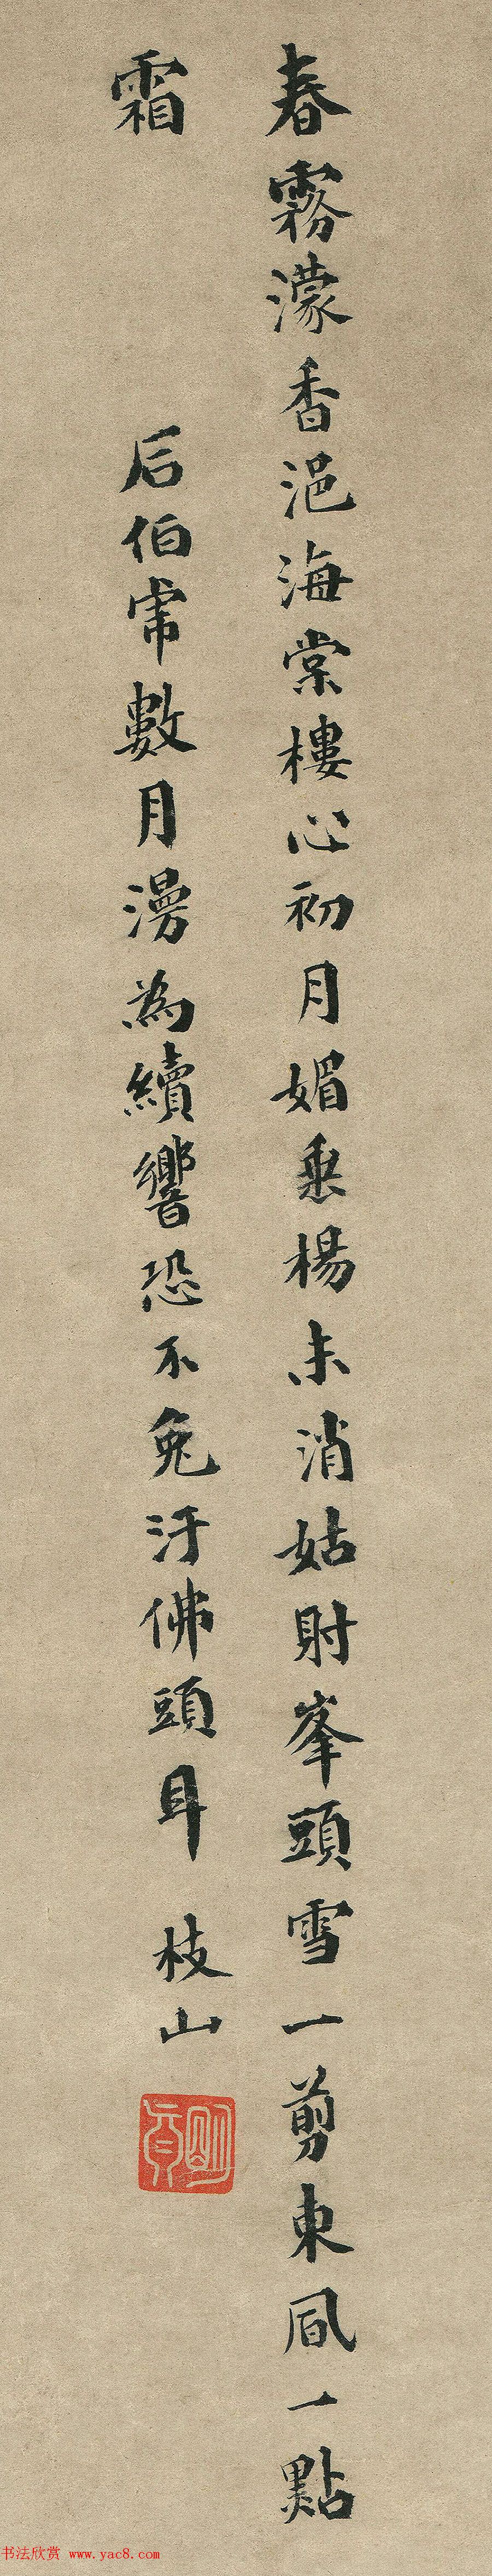 春霧濛香浥海棠樓心初月媚垂楊未消姑射峯頭雪一剪東風一點
霜
后伯常數月漫為續響恐不免汙佛頭耳 枝山
书法欣赏 www.yac8.com